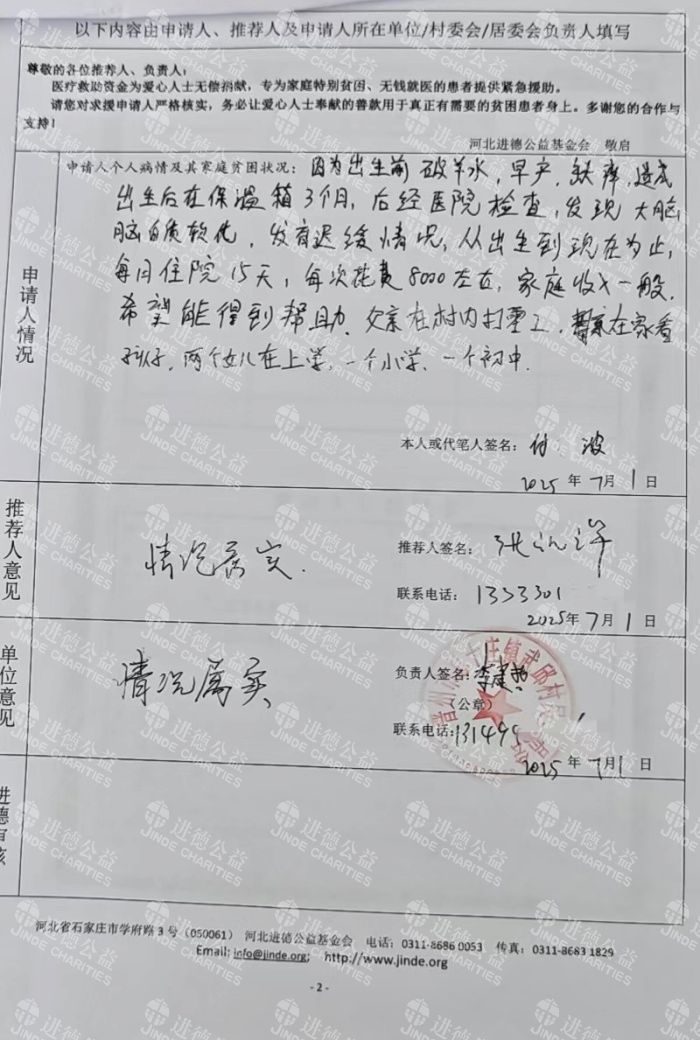 以下内容由申请人、推荐人及申请人所在单位/村委会/居委会负责人填写
尊敬的各位推荐人、负责人：
医疗救助资金为爱心人士无偿捐献，专为家庭特别贫困、无钱就医的患者提供紧急援助。
请您对求援申请人严格核实，务必让爱心人士奉献的善款用于真正有需要的贫困患者身上。多谢您的合作与
支持！
河北进德公益基金会 敬启
申请人情况
申请人个人病情及其家庭贫困状况：因为出生前破羊水，早产，缺痒，造成
出生后在保温箱3个月，后经医院检查，发现大脑
脑白质软化，发育迟缓情况，从出生到现在为止，
每月住院15天，每次花费8000左右，家庭收入一般。
希望能得到帮助。父亲在村内打零工，在家看
孩子，两个女儿在上学，一个小学，一个初中.
本人或代笔人签名：付 波
2025年7月1日
推荐人意见
情况属实.
推荐人签名：
联系电话：1333301
2025年7月1日
单位意见
情况属实
负责人签名：李建
（公章）
联系电话：13149
2025年7月1日
进德审核
河北省石家庄市学府路3号（050061） 河北进德公益基金会 电话：0311-8686 0053 传真：0311-8683 1829
Email: info@jinde.org; http://www.jinde.org
- 2 -
进德公益
JINDE CHARITIES